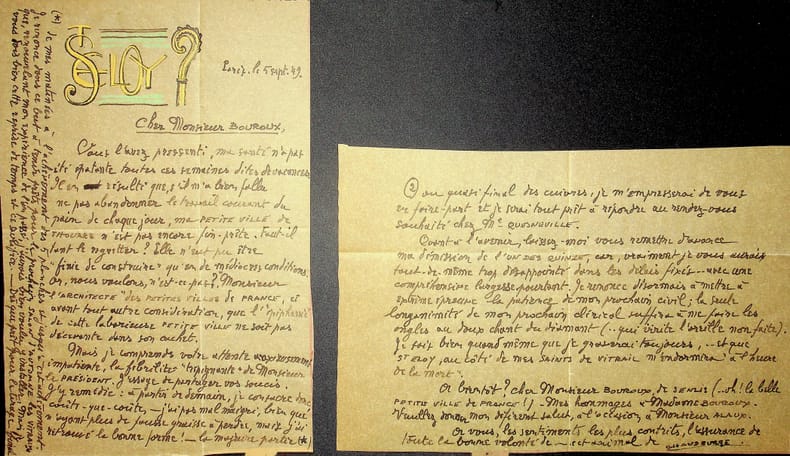 ST ELOY
Paris, le 5 sept. 49.
Cher Monsieur BOUROUX,
Vous l'avez pressenti, ma santé n'a pas
été épatante toutes ces semaines dites de vacances.
Il en résulte que, s'il m'a bien fallu
ne pas abandonner le travail courant du
pain de chaque jour, ma PETITE VILLE DE
n'est pas encore fin-prête. Faut-il
tant le regretter? Elle n'eut pu être
"finie de construire" qu'en de médiocres conditions.
Or, nous voulons, n'est-ce pas, Monsieur
l'ARCHITECTE "DES PETITES VILLES DE FRANCE", et
avant tout autre considération, que l'"épiphanie"
de cette laborieuse PETITE VILLE ne soit pas
décevante dans son cachet.
Mais je comprends votre attente
impatiente, la fébrilité "trépignante" de Monsieur
le PRESIDENT. J'essaye de partager vos soucis.
J'y remédie: à partir de demain, je consacre donc
coûte-que-coûte, — j'ai pas mal maigri, bien que
n'ayant plus de fausse graisse à perdre, mais j'ai
retrouvé la bonne forme! — la majeure partie (*)
(*) de mes matinées à l'achèvement des planches
Je renonce dans ce but à tenir prêts pour le prochain salon d'automne les vitraux
que, renouvelant mon expérience de l'an passé, j'aurais bien voulu y installer. Mais, je
vous dois bien cette reprise de temps et ce sacrifice.
(2) au quasi final des cuivres, je m'empresserai de vous
en faire-part et je serai tout prêt à répondre au rendez-vous
souhaité chez Mr QUESNEVILLE.
Quant à l'avenir, laissez-moi vous remettre d'avance
ma démission de l'UN DES QUINZE, car, vraiment je vous aurais
tout-de-même trop désappointé dans les délais fixés... avec une
compréhensive largesse pourtant. Je renonce désormais à mettre à
extrême épreuve la patience de mon prochain civil; la seule
longanimité de mon prochain clérical suffira à me faire les
ongles au doux chant du diamant (.. qui irrite l'oreille non faite).
Je sais bien quand même que je graverai toujours, .. et que
ST ELOY, au côté de mes SAINTS DE VITRAIL m'endormira "à l'heure
de la mort".
A bientôt? cher Monsieur BOUROUX, de SENLIS (..oh! la belle
PETITE VILLE DE FRANCE!). — Mes hommages à Madame BOUROUX.
Veuillez donner mon déférent salut, à l'occasion, à Monsieur BEAUX.
A vous, les sentiments les plus contrits, l'assurance de
toute la bonne volonté de — cet animal de